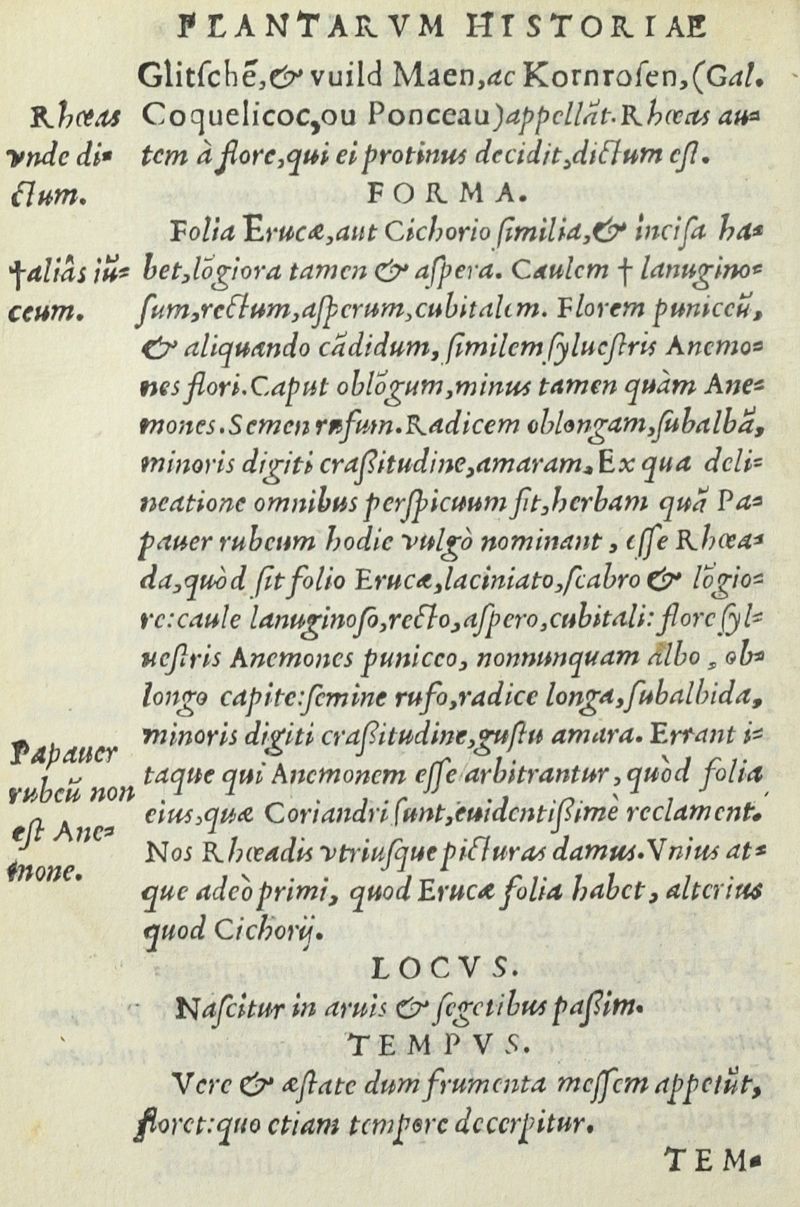 PLANTARVM HISTORIAE
Glitſchẽ,& vuild Maen,ac Kornroſen,(Gal.
Coquelicoc,ou Ponceau)appellãt.Rhœas au-
tem à flore,qui ei protinus decidit,dictum eſt.
Rhœas
vnde di-
ctum.
FORMA.
Folia Erucæ,aut Cichorio ſimilia,& inciſa ha-
bet,lõgiora tamen & aſpera. Caulem † lanugino-
ſum,rectum,aſperum,cubitalem. Florem puniceũ,
& aliquando cãdidum, ſimilem ſylueſtris Anemo-
nes flori.Caput oblõgum,minus tamen quàm Ane-
mones.Semen rufum.Radicem oblongam,ſubalbã,
minoris digiti craßitudine,amaram.Ex qua deli-
neatione omnibus perſpicuum fit,herbam quã Pa-
pauer rubeum hodie vulgò nominant, eſſe Rhœa-
da,quòd ſit folio Erucæ,laciniato,ſcabro & lõgio-
re:caule lanuginoſo,recto,aſpero,cubitali:flore ſyl-
ueſtris Anemones puniceo, nonnunquam albo, ob-
longo capite:ſemine rufo,radice longa,ſubalbida,
minoris digiti craßitudine,guſtu amara. Errant i-
taque qui Anemonem eſſe arbitrantur, quòd folia
eius,quæ Coriandri ſunt,euidentißimè reclament.
Nos Rhœadis vtriuſque picturas damus.Vnius at-
que adeò primi, quod Erucæ folia habet, alterius
quod Cichorij.
†aliâs iũ-
ceum.
Papauer
rubeũ non
eſt Ane-
mone.
LOCVS.
Naſcitur in aruis & ſegetibus paßim.
TEMPVS.
Vere & æſtate dum frumenta meſſem appetũt,
floret:quo etiam tempore decerpitur.
TEM-